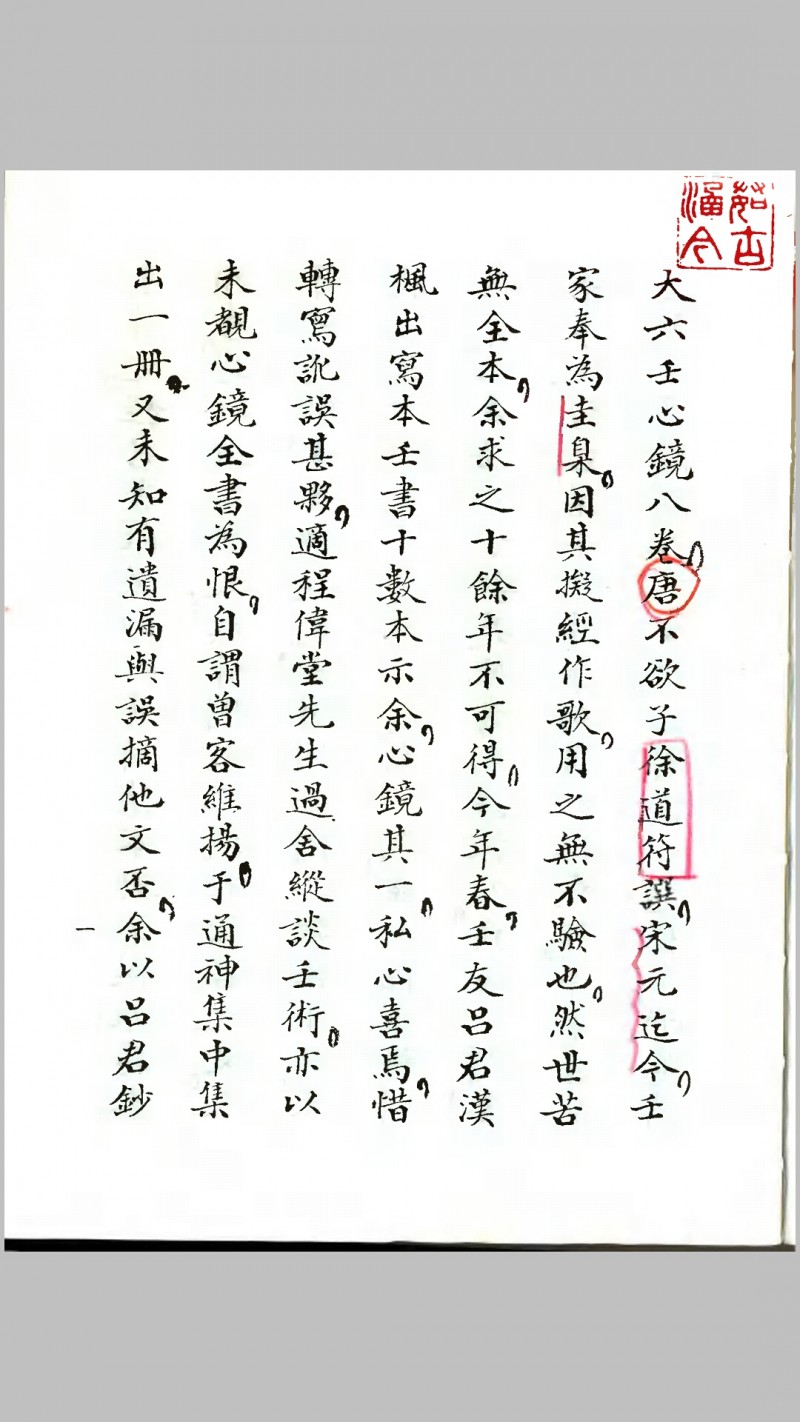 茹古
涵今
大六壬心鏡八卷唐不欲子徐道符譔宋元迄今壬
家奉為圭臬因其擬經作歌用之無不驗也然世苦
無全本余求之十餘年不可得今年春壬友呂君漢
楓出寫本壬書十數本示余心鏡其一私心喜焉惜
轉寫訛誤甚夥適程偉堂先生過舍縱談壬術亦以
未覩心鏡全書為恨自謂曾客維揚于通神集中集
出一冊又未知有遺漏與誤摘他文否余以呂君鈔
一